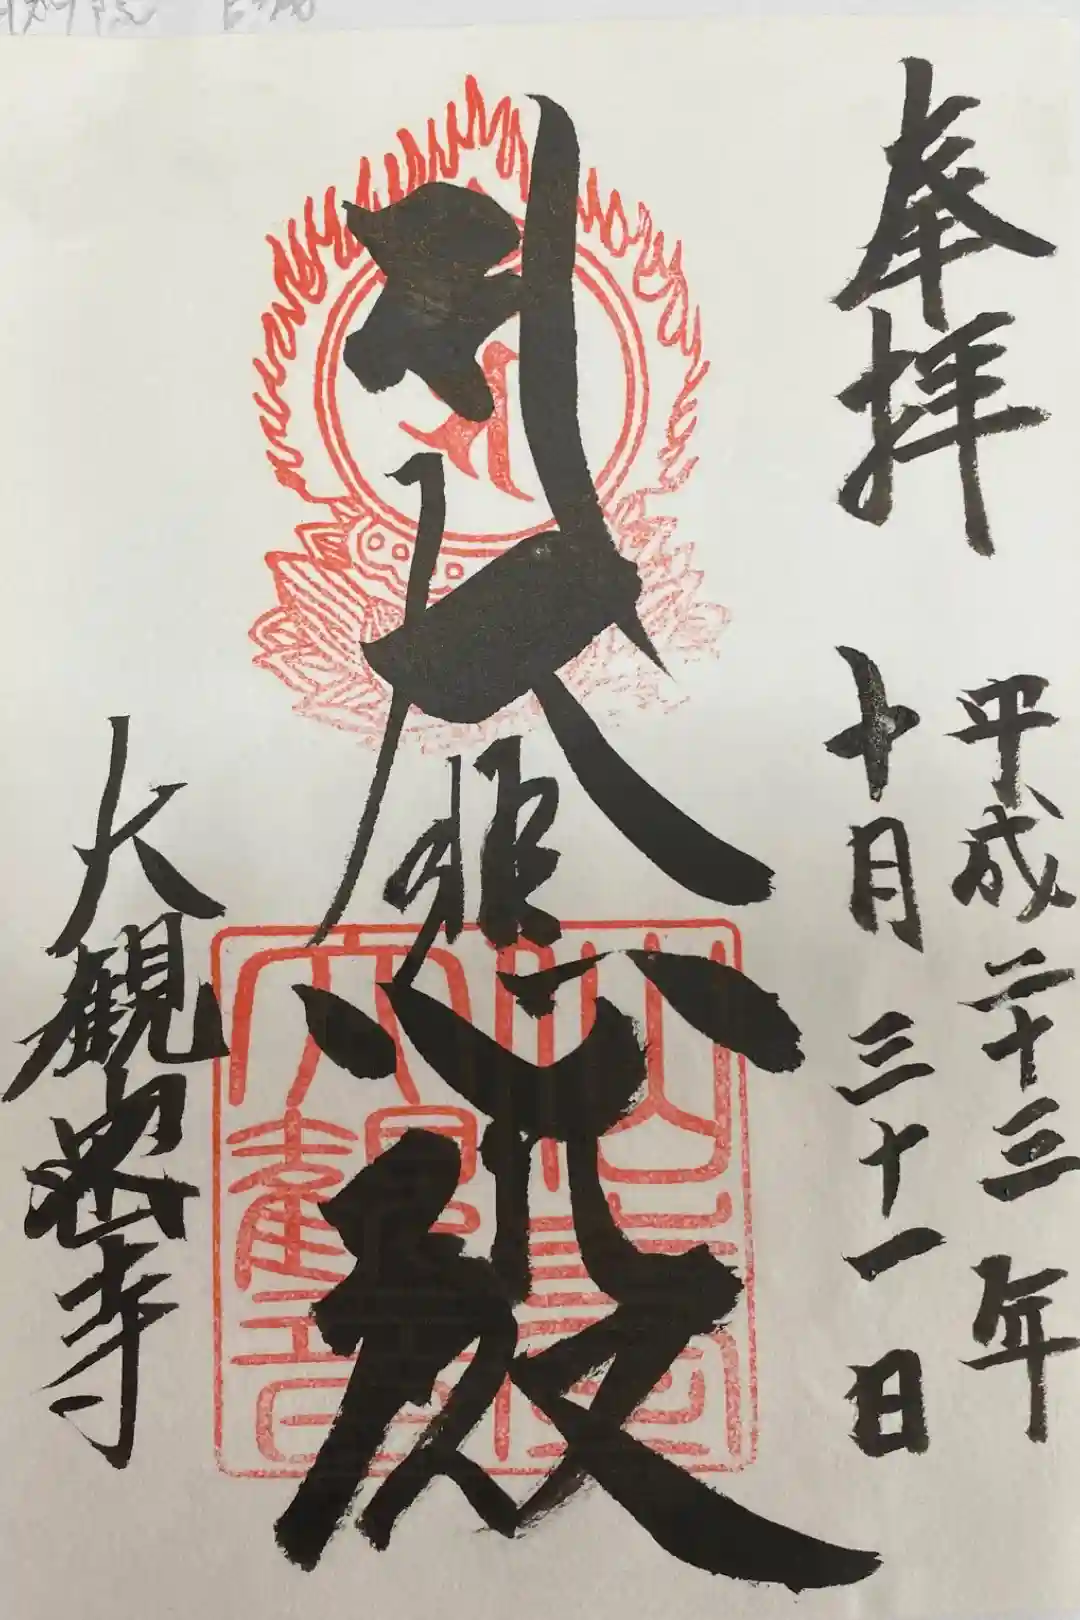 奉拝
平成二十三年
十月三十一日
大悲殿
大観密寺